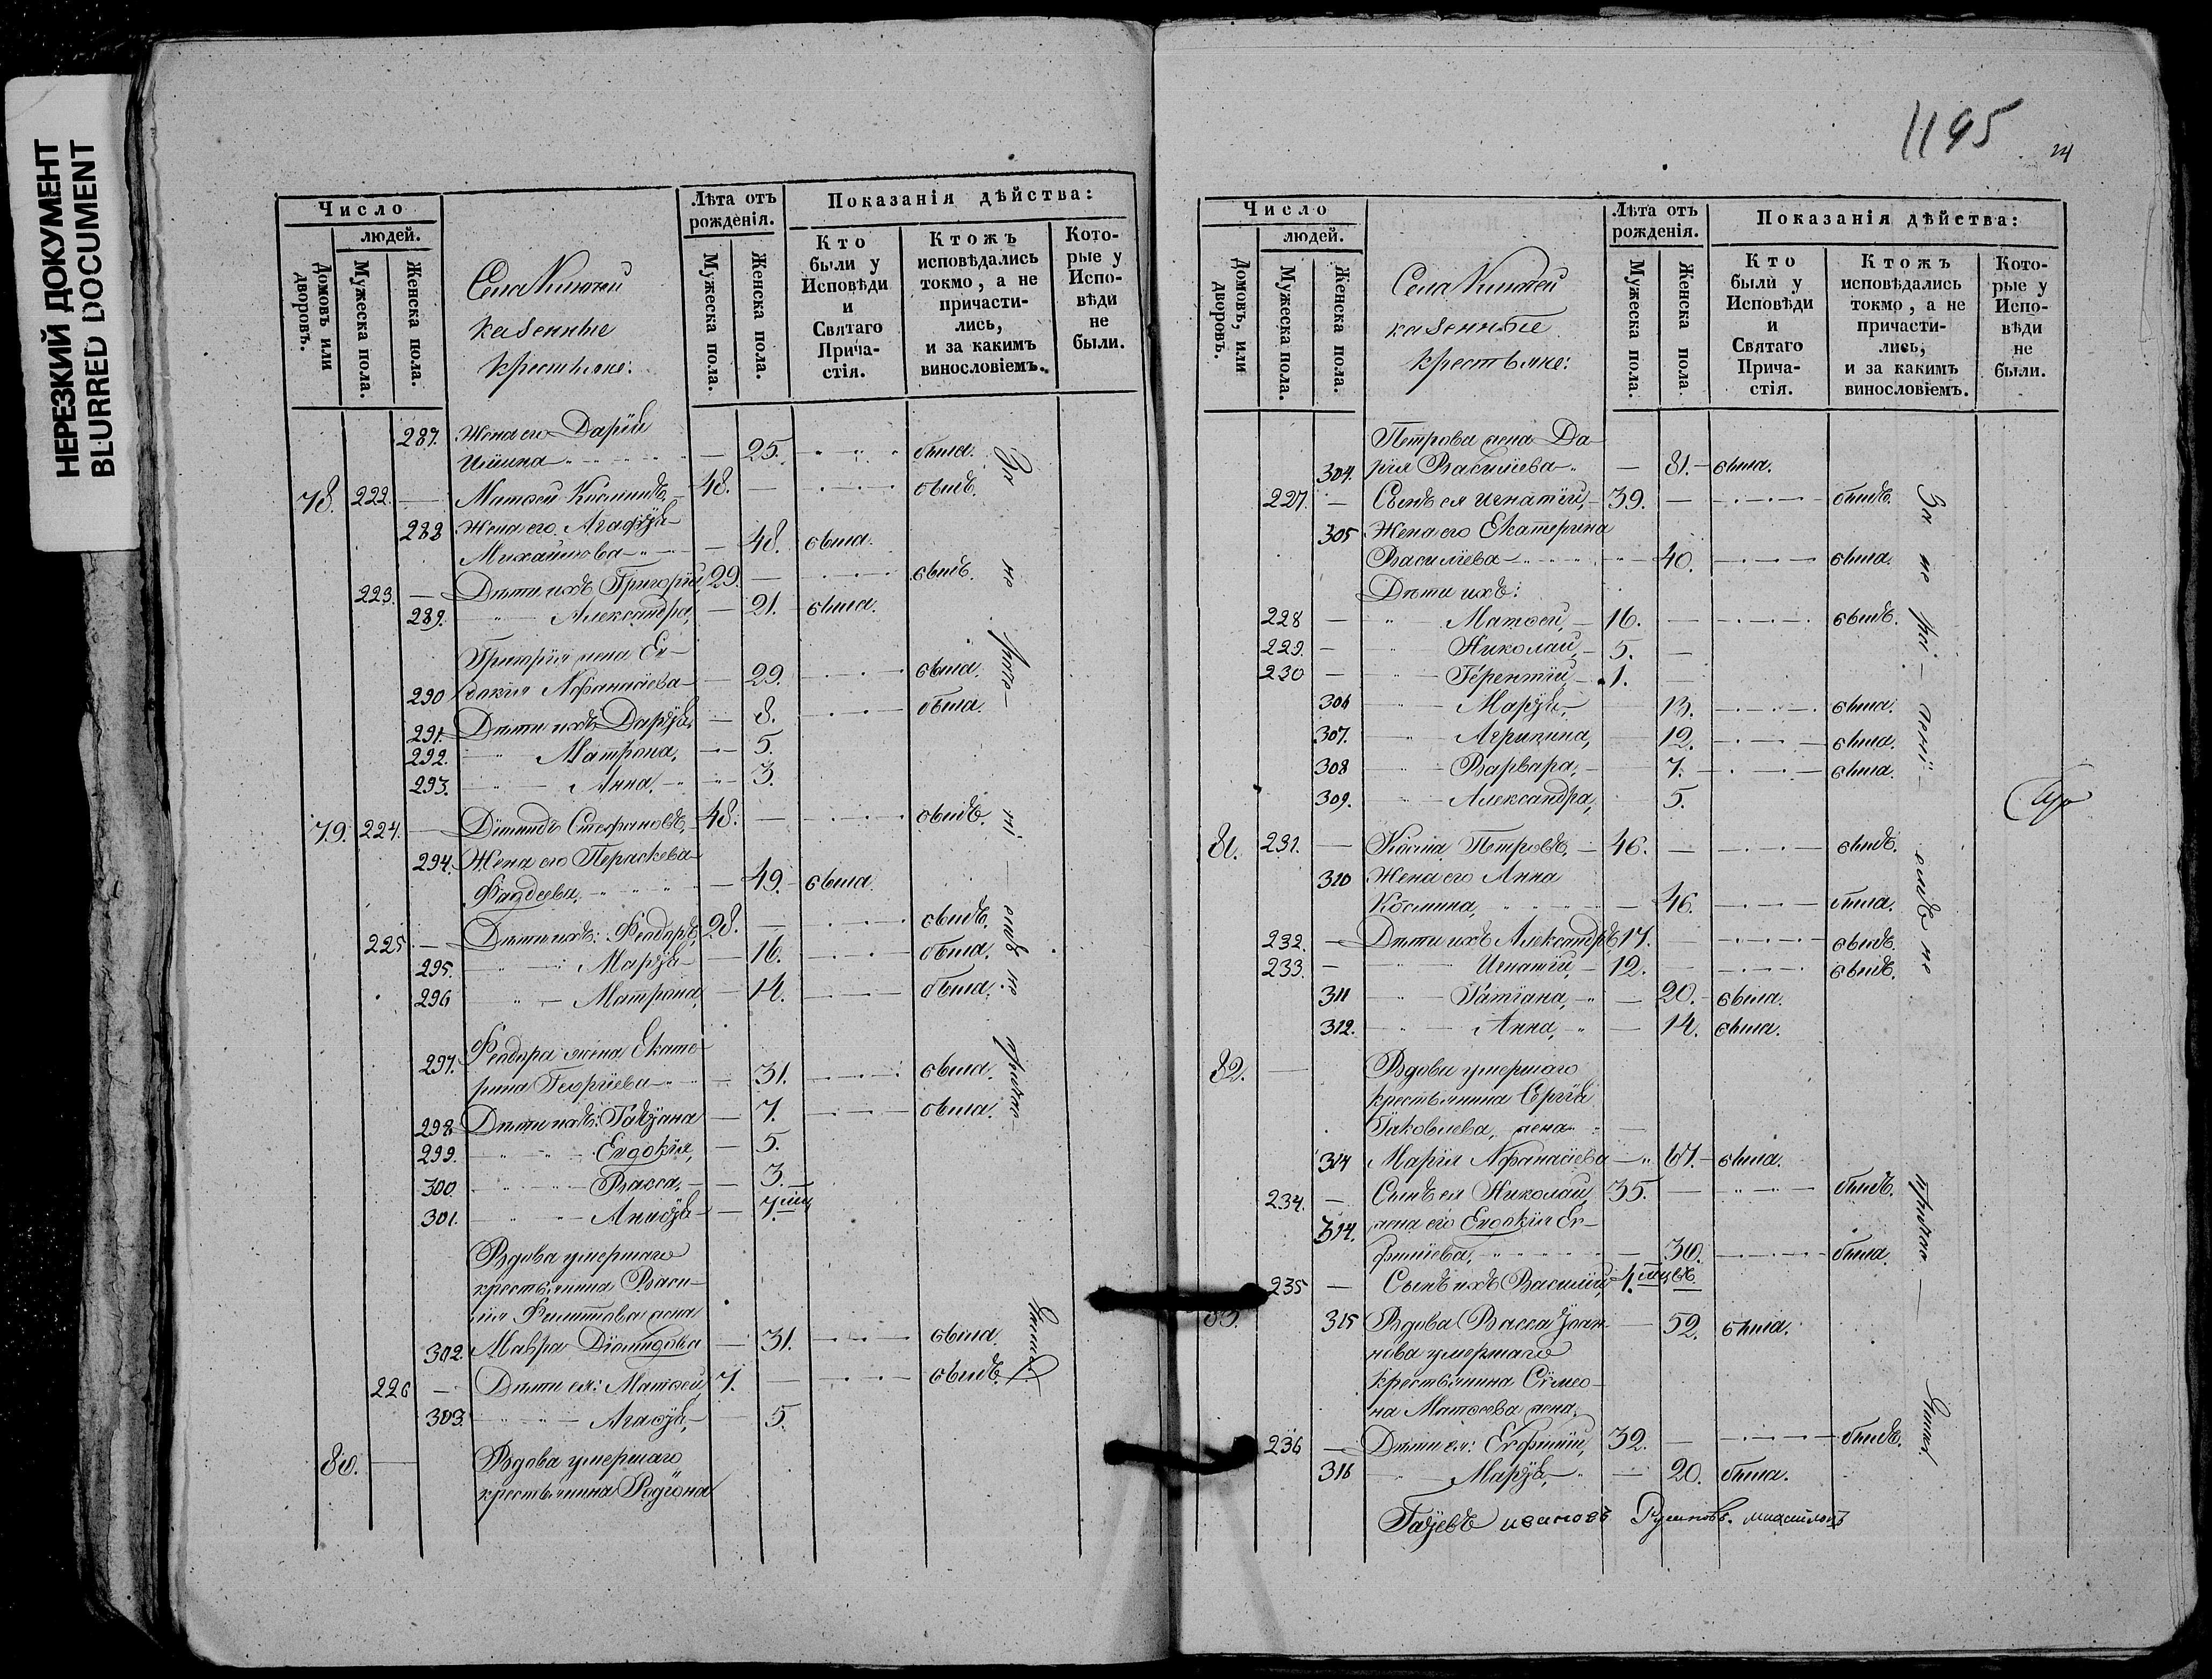 НЕРЕЗКИЙ ДОКУМЕНТ
BLURRED DOCUMENT
Число
людей.
Домовъ или дворовъ.
Мужеска пола.
Женска пола.
Села
казенные
крестьяне:
Лѣта отъ рожденія.
Мужеска пола.
Женска пола.
Показанія дѣйства:
Кто были у Исповѣди и Святаго Прича-стія.
Ктожъ исповѣдались токмо, а не причасти-лись, и за какимъ винословіемъ.
Кото-рые у Испо-вѣди не были.
287. Жена его Дарія
25. была.
78. 222. Матѳей Косминъ 48. былъ.
288 Жена его Агафія
Михайлова 48. была.
223. Дѣти ихъ Григорій, 29. былъ.
289. Александра, 21. была.
Григорія жена Ев-
290 докія Афанасіева 29. была.
291. Дѣти ихъ Дарія, 8. была.
292. Матрона, 5.
293. Анна, 3.
79. 224. Діомидъ Стефановъ, 48. былъ.
294. Жена его Параскева
Фаддеева, 49. была.
225 Дѣти ихъ: Феодоръ, 28. былъ.
295. Марія 16. была.
296 Матрона, 14. была.
Феодора жена Екате-
297. рина Георгіева 31. была.
298 Дѣти ихъ: Татіана 7. была.
299. Евдокія, 5.
300. Васса, 3.
301. Анисія
Вдова умершаго
крестьянина Васи-
лія Филиппова жена
302. Мавра Діомидова 31. была.
226 Дѣти ея: Матѳей 7. былъ.
303. Агафія, 5.
80. Вдова умершаго
крестьянина Родіона
За не
1195
24
Число
людей.
Домовъ, или дворовъ.
Мужеска пола.
Женска пола.
Села
казенные
крестьяне:
Лѣта отъ рожденія.
Мужеска пола.
Женска пола
Показанія дѣйства:
Кто были у Исповѣди и Святаго Прича-стія.
Ктожъ исповѣдались токмо, а не причасти-лись, и за какимъ винословіемъ.
Кото-рые у Испо-вѣди не были.
Петрова жена Да-
304. рія Васильева 81. была.
227. Сынъ ея Игнатій, 39. былъ.
305 Жена его Екатерина
Васильева 40. была.
Дѣти ихъ:
228 Матѳей, 16. былъ.
229. Николай, 5.
230 Терентій, 1.
306 Марія, 13. была.
307. Агрипина, 12. была.
308 Варвара, 7. была.
309. Александра, 5.
81. 231. Косма Петровъ, 46. былъ.
310 Жена его Анна
Космина, 46. была.
232. Дѣти ихъ Александръ 17. былъ.
233. Игнатій, 12. былъ.
311 Татіана, 20. была.
312. Анна, 14. была.
82. Вдова умершаго
крестьянина Сергія
Іаковлева, жена
314 Марія Афанасіева 67. была.
234. Сынъ ея Николай, 35. былъ.
314. жена его Евдокія Ев-
фиміева, 36. была.
235 Сынъ ихъ Василій,
83. 315 Вдова Васса Іоан-
нова умершаго 52. была.
крестьянина Сѵмео-
на Матѳеева жена,
236 Дѣти ея: Евфимій, 32. былъ.
316 Марія, 20. была.
За не